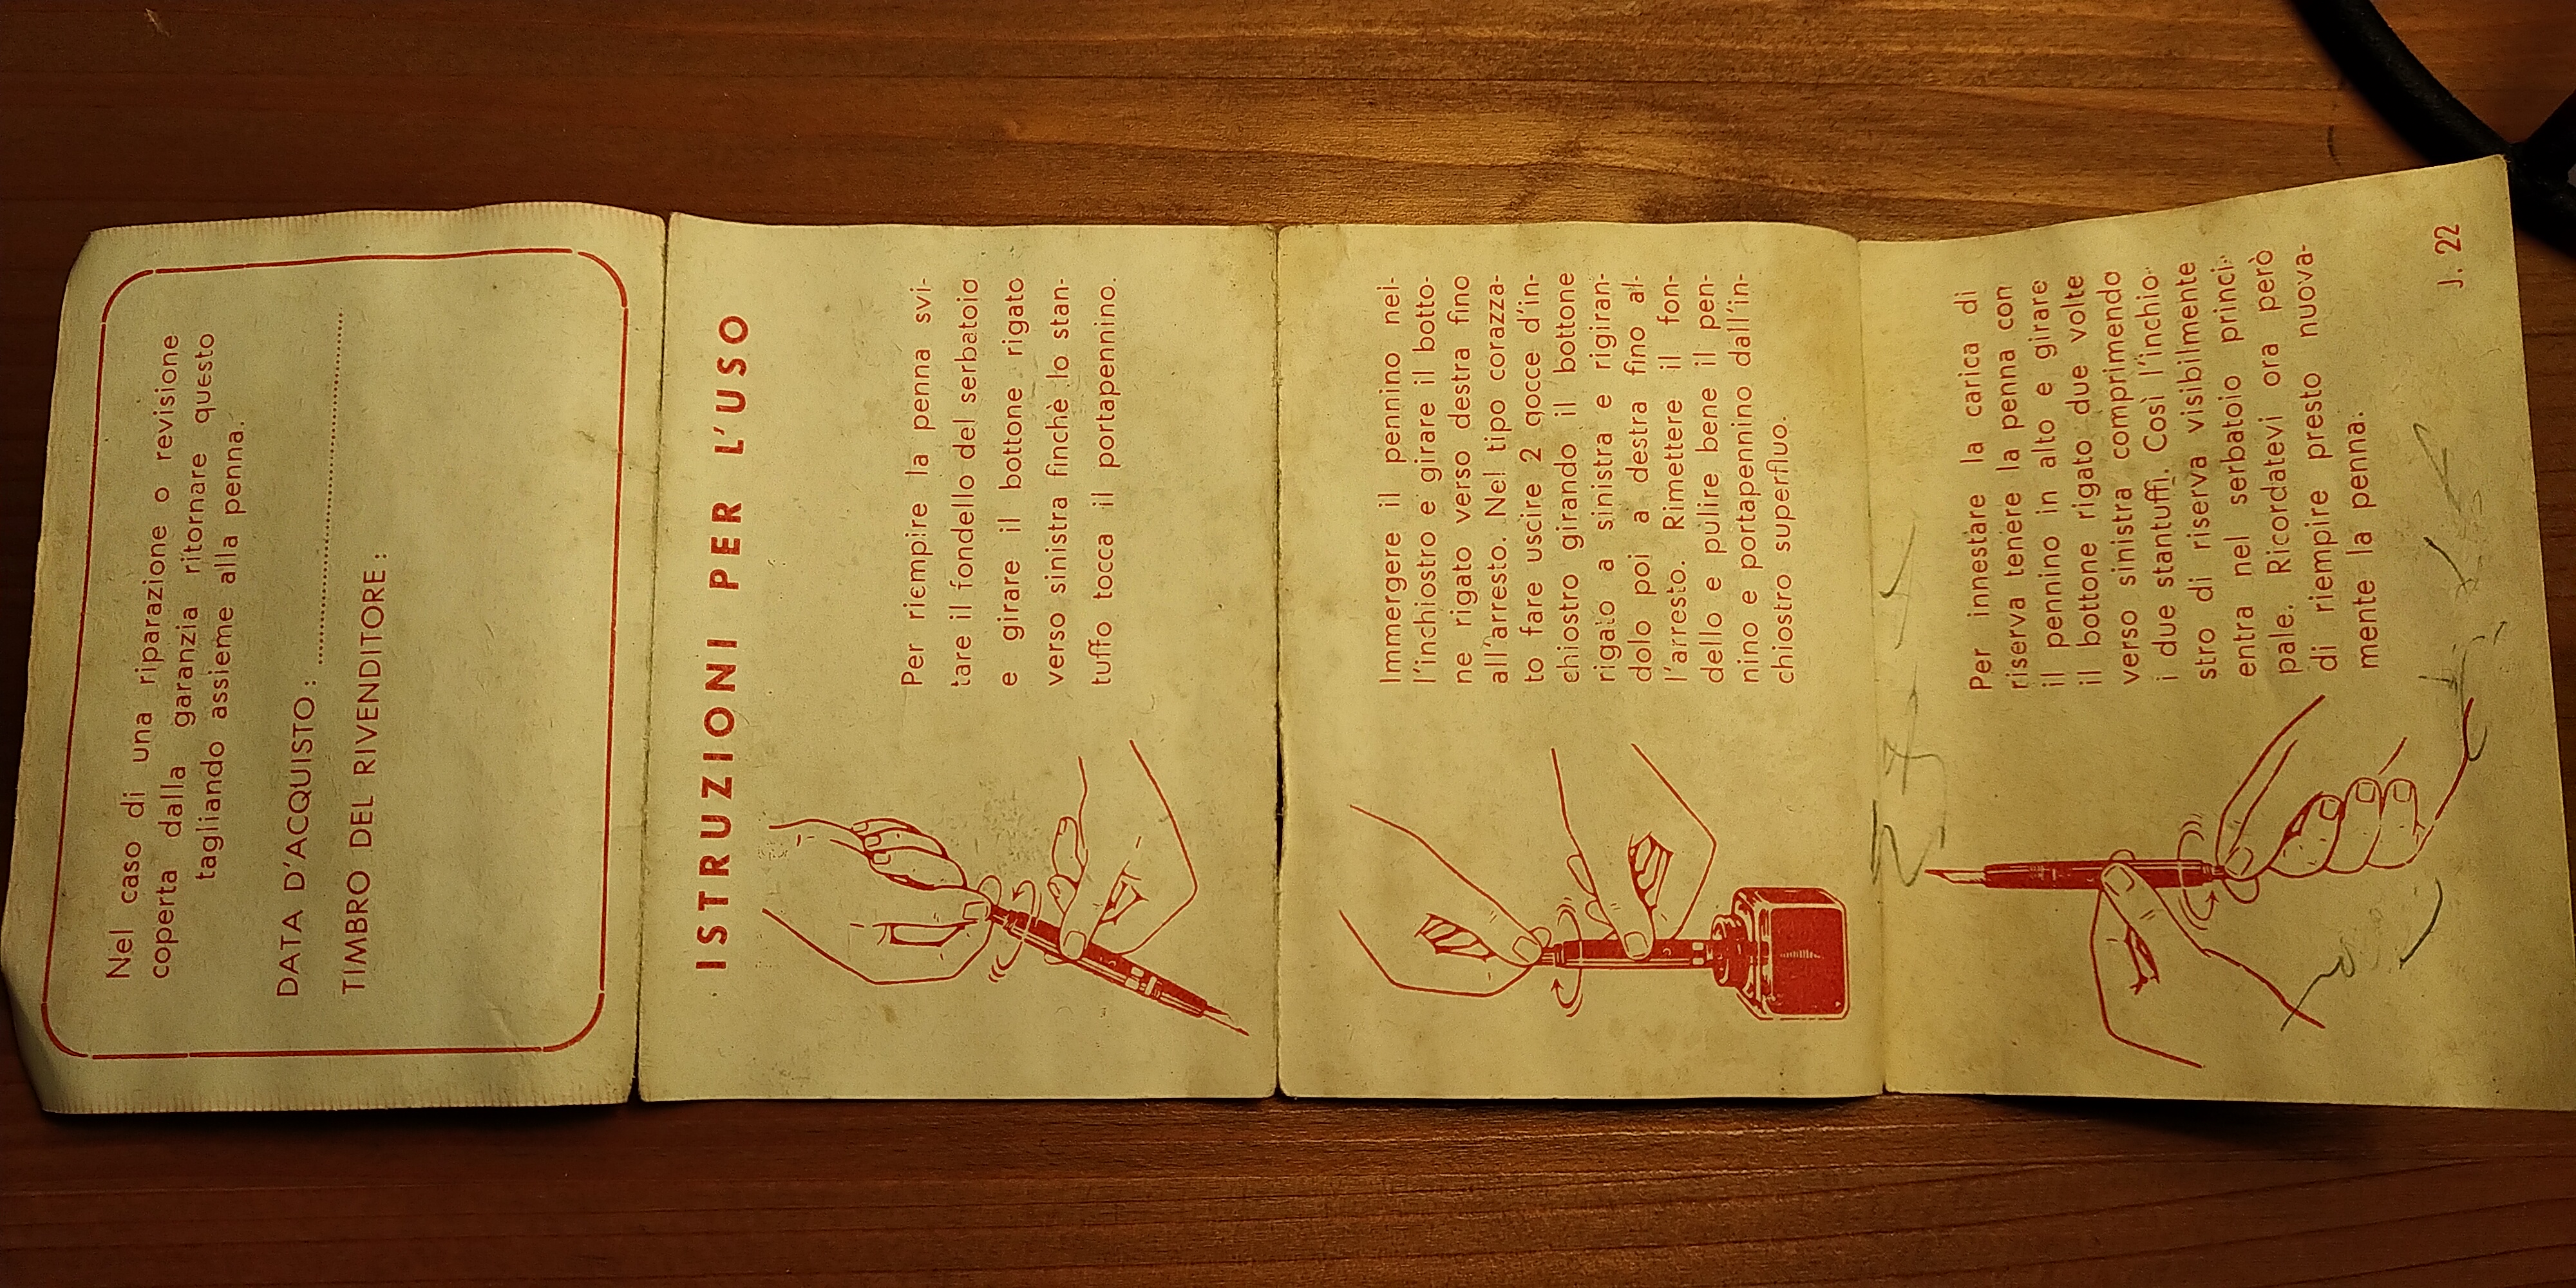 Nel caso di una riparazione o revisione
coperta dalla garanzia ritornare questo
tagliando assieme alla penna.
DATA D'ACQUISTO : ....................
TIMBRO DEL RIVENDITORE :
ISTRUZIONI PER L'USO
Per riempire la penna svi-
tare il fondello del serbatoio
e girare il bottone rigato
verso sinistra finchè lo stan-
tuffo tocca il portapennino.
Immergere il pennino nel-
l'inchiostro e girare il botto-
ne rigato verso destra fino
all'arresto. Nel tipo corazza-
to fare uscire 2 gocce d'in-
chiostro girando il bottone
rigato a sinistra e rigiran-
dolo poi a destra fino al-
l'arresto. Rimettere il fon-
dello e pulire bene il pen-
nino e portapennino dall'in-
chiostro superfluo.
Per innestare la carica di
riserva tenere la penna con
il pennino in alto e girare
il bottone rigato due volte
verso sinistra comprimendo
i due stantuffi. Così l'inchio-
stro di riserva visibilmente
entra nel serbatoio princi-
pale. Ricordatevi ora però
di riempire presto nuova-
mente la penna.
J. 22